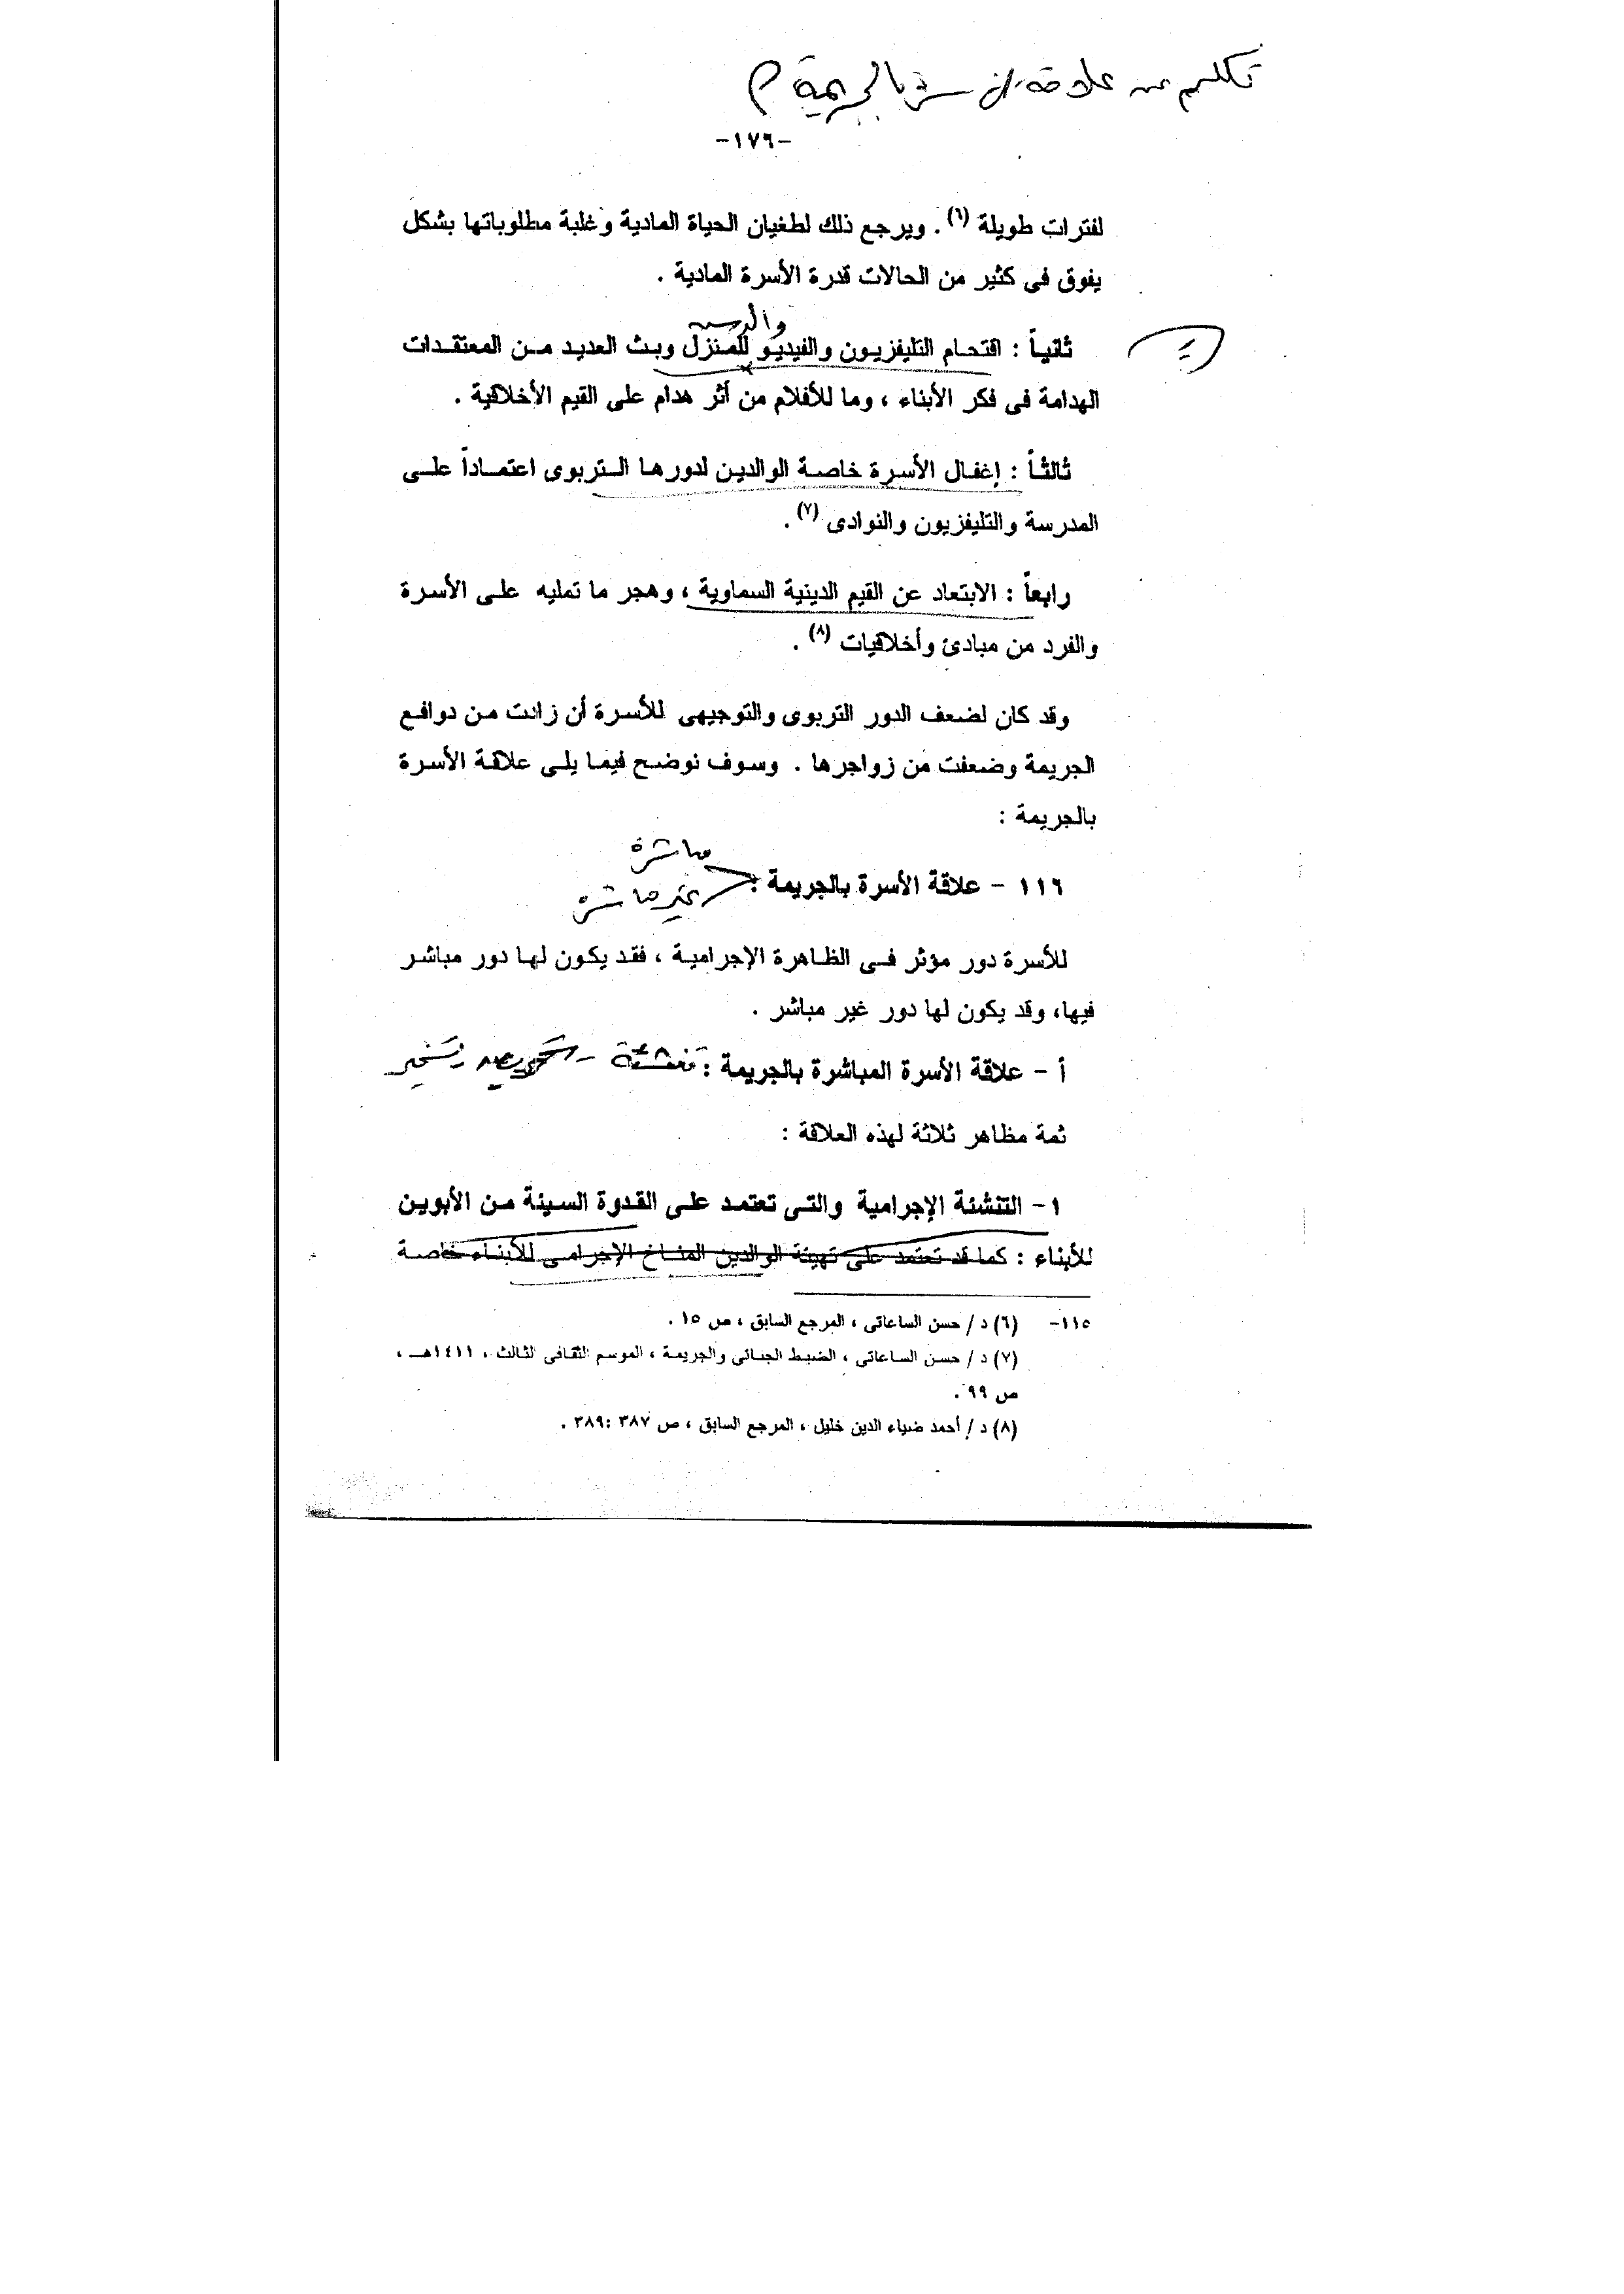 تكلم عن علاقة الأسرة بالجريمة
-١٧٦-
لفترات طويلة (٦) . ويرجع ذلك لطغيان الحياة المادية وغلبة مطلوباتها بشكل
يفوق فى كثير من الحالات قدرة الأسرة المادية .
ثانياً : اقتحام التليفزيون والفيديو للمنزل وبث العديد من المعتقدات
الهدامة فى فكر الأبناء ، وما للأفلام من أثر هدام على القيم الأخلاقية .
ثالثاً : إغفال الأسرة خاصة الوالدين لدورها التربوى اعتماداً على
المدرسة والتليفزيون والنوادى (٧) .
رابعاً : الابتعاد عن القيم الدينية السماوية ، وهجر ما تمليه على الأسرة
والفرد من مبادئ وأخلاقيات (٨) .
وقد كان لضعف الدور التربوى والتوجيهى للأسرة أن زادت من دوافع
الجريمة وضعفت من زواجرها . وسوف نوضح فيما يلى علاقة الأسرة
بالجريمة :
مباشرة
١١٦ - علاقة الأسرة بالجريمة :
غير مباشرة
للأسرة دور مؤثر فى الظاهرة الإجرامية ، فقد يكون لها دور مباشر
فيها، وقد يكون لها دور غير مباشر .
أ - علاقة الأسرة المباشرة بالجريمة : تنشئة -
ثمة مظاهر ثلاثة لهذه العلاقة :
١- التنشئة الإجرامية والتى تعتمد على القدوة السيئة من الأبوين
للأبناء : كما قد تعتمد على تهيئة الوالدين المناخ الإجرامى للأبناء خاصة
١١٥- (٦) د / حسن الساعاتى ، المرجع السابق ، ص ١٥ .
(٧) د / حسن الساعاتى ، الضبط الجنائى والجريمة ، الموسم الثقافى الثالث ، ١٤١١هـ ،
ص ٩٩ .
(٨) د / أحمد ضياء الدين خليل ، المرجع السابق ، ص ٣٨٧ :٣٨٩ .